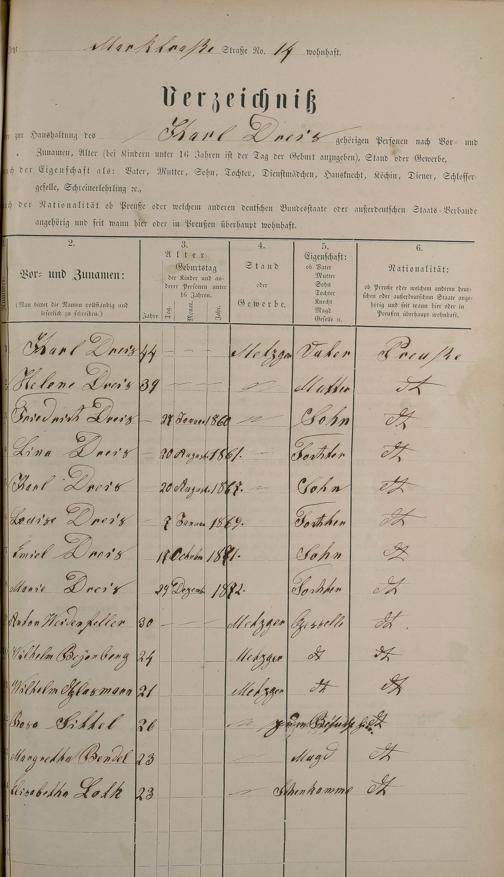 Marktstraße Straße No. 14 wohnhaft.
Verzeichniß
zur Haushaltung des Karl Dreis gehörigen Personen nach Vor- und
Zunamen, Alter (bei Kindern unter 16 Jahren ist der Tag der Geburt anzugeben), Stand oder Gewerbe,
nach der Eigenschaft als: Vater, Mutter, Sohn, Tochter, Dienstmädchen, Hausknecht, Köchin, Diener, Schlosser-
geselle, Schreinerlehrling ꝛc.,
nach der Nationalität ob Preuße oder welchem anderen deutschen Bundesstaate oder außerdeutschen Staats-Verbande
angehörig und seit wann hier oder in Preußen überhaupt wohnhaft.
2. 3. 4. 5. 6.
Vor- und Zunamen:
(Man bittet die Namen vollständig und
leserlich zu schreiben.)
Alter
Jahre
Geburtstag
der Kinder und an-
derer Personen unter
16 Jahren.
Tag. Monat. Jahr.
Stand
oder
Gewerbe.
Eigenschaft:
ob Vater
Mutter
Sohn
Tochter
Knecht
Magd
Geselle u.
Nationalität:
ob Preuße oder welchem anderen deut-
schen oder außerdeutschen Staat ange-
hörig und seit wann hier oder in
Preußen überhaupt wohnhaft.
Karl Dreis 44 Metzger Vater Preuße
Helene Dreis 39 " Mutter dt
Friedrich Dreis Januar 1860 " Sohn dt
Lina Dreis 20 August 1861. Tochter dt
Karl Dreis 20 August Sohn dt
Louise Dreis 7 Januar 1869. Tochter dt
Emiel Dreis October 1871. Sohn dt
Marie Dreis 29 Dezemb 1872. Tochter dt
Anton Weidenfeller 30 Metzger Geselle dt
Wilhelm 24 Metzger dt dt
Wilhelm 21 Metzger dt dt
Rosa Sittel 26 " dt
Margretha Bendel 23 Magd dt
Elisabetha Loth 23 dt